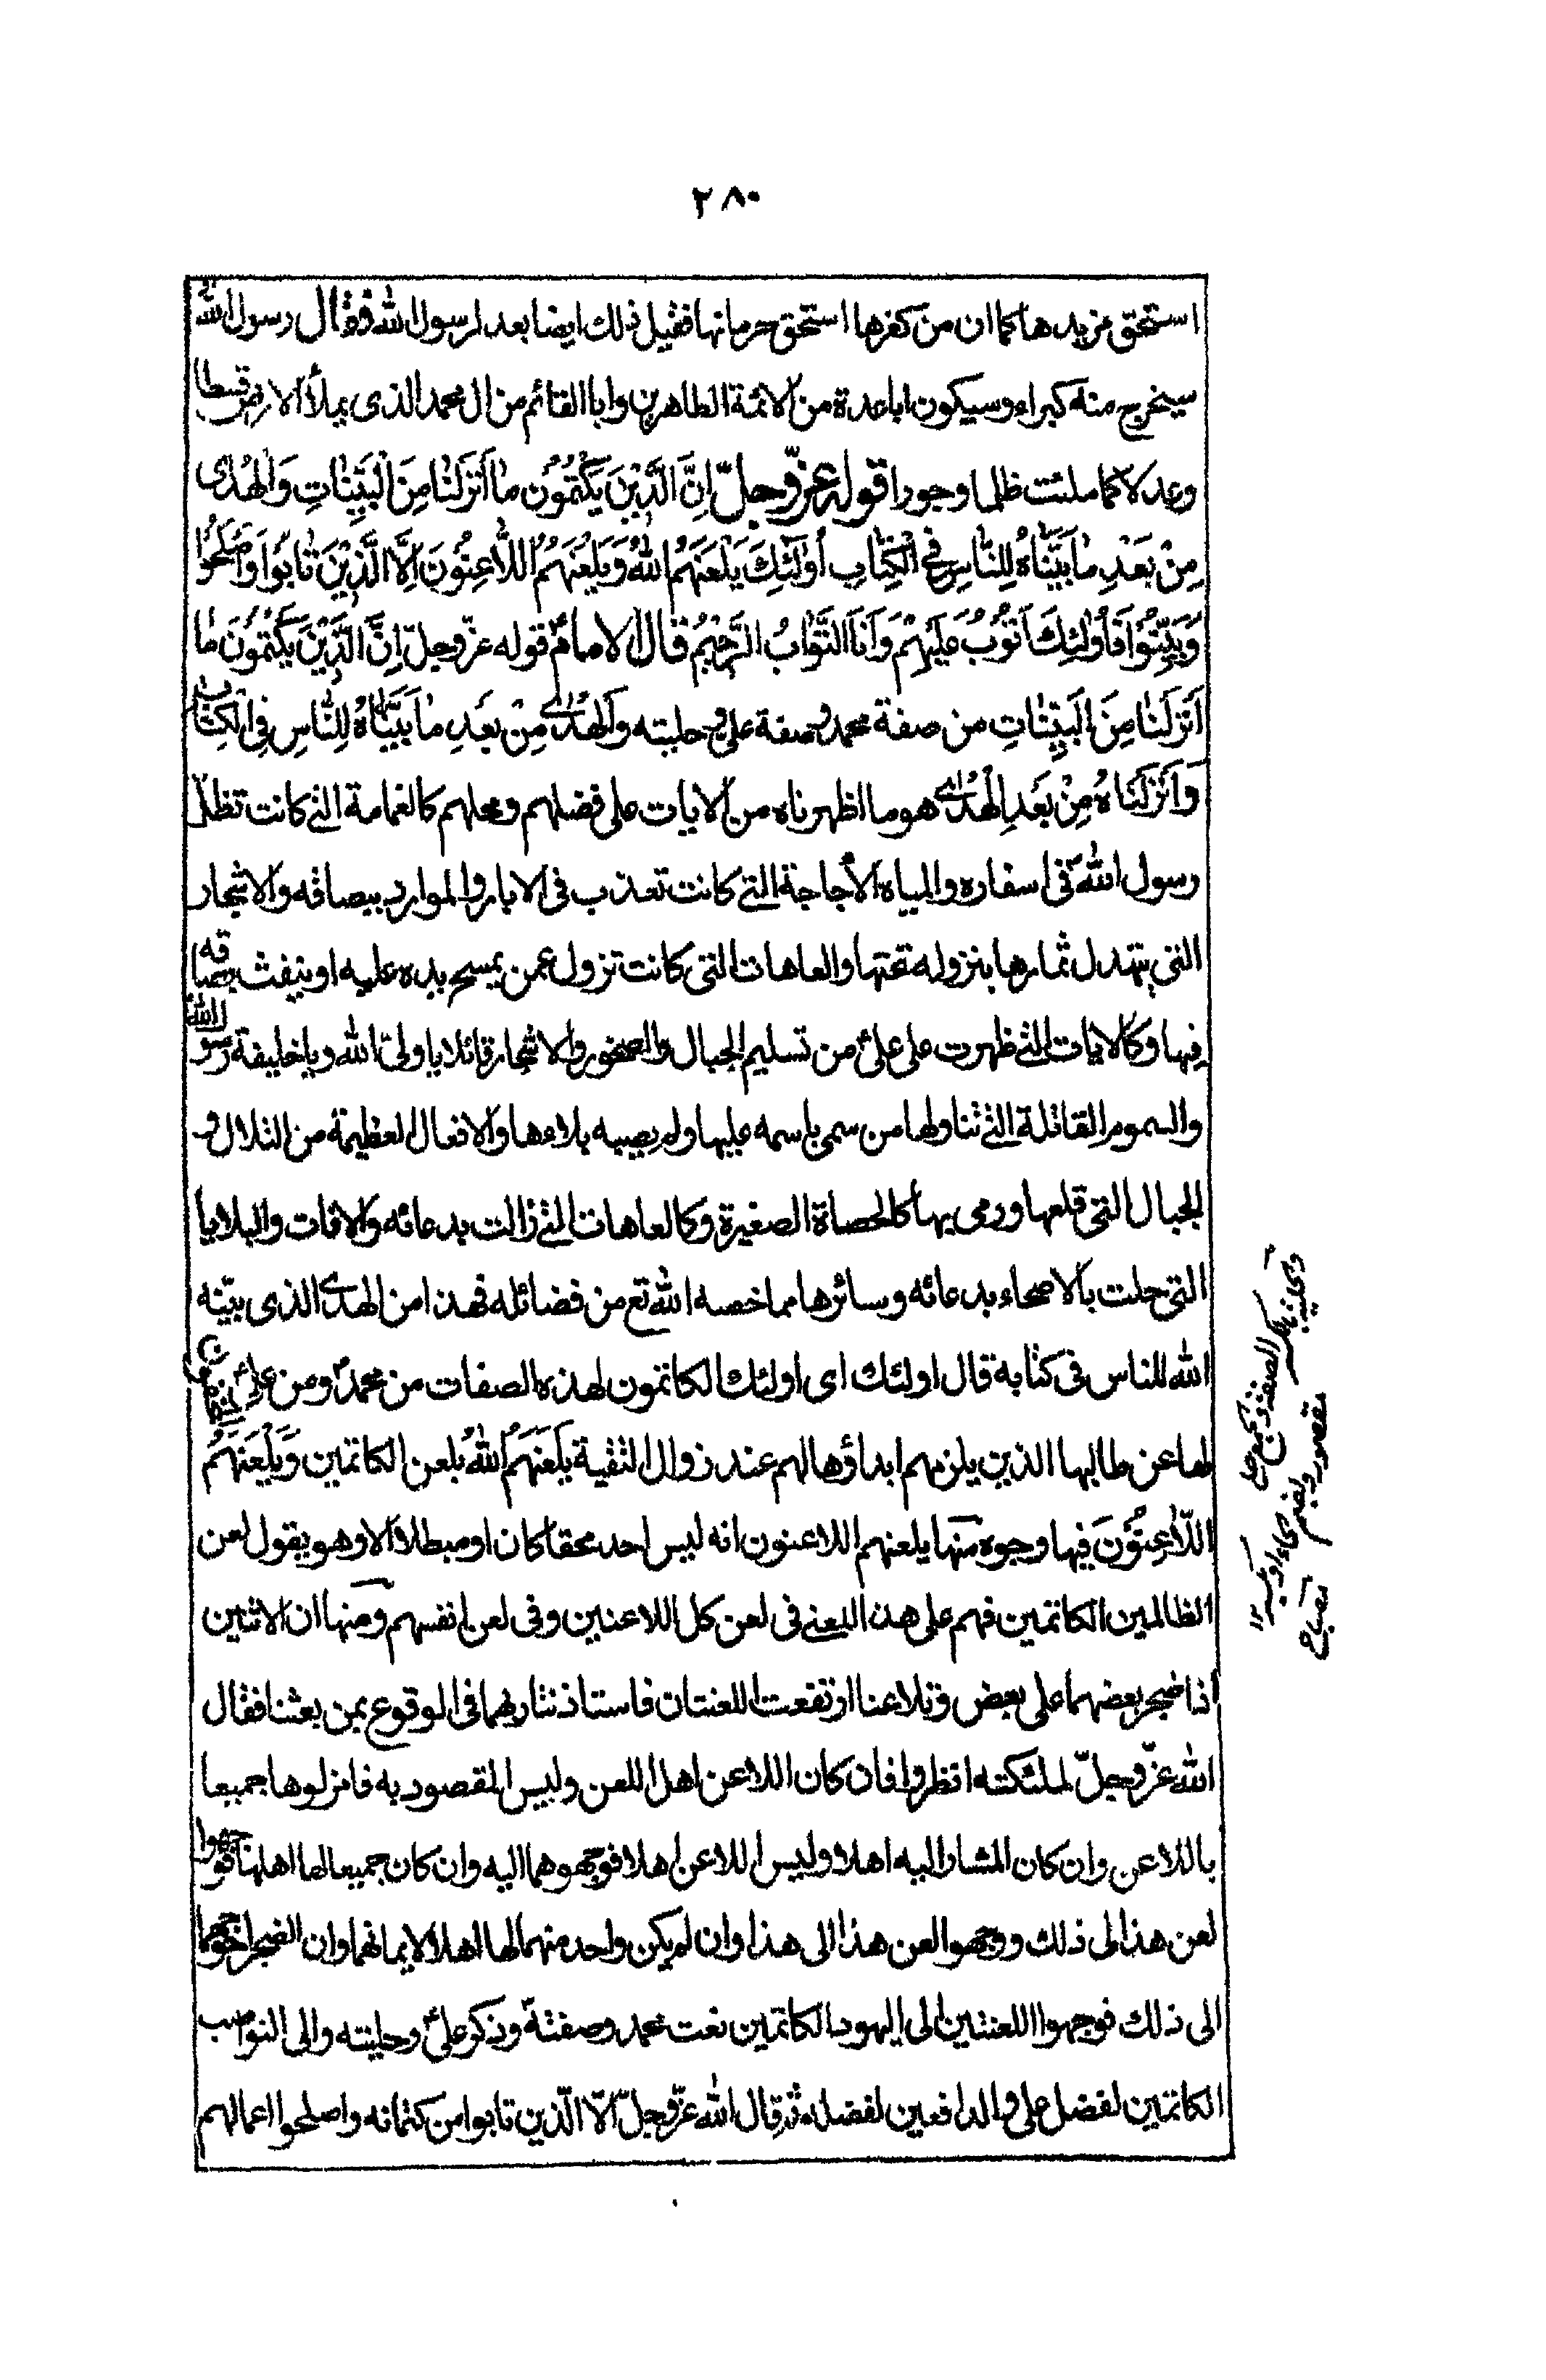 ٢٨٠
استحق مزيدها كما ان من كفرها استحق حرمانها فقيل ذلك ايضا بعد لرسول الله فقال رسول الله
سيخرج منه كبراء وسيكون ابا عدة من الائمة الطاهرين وابا القائم من ال محمد الذى يملأ الارض قسطا
وعدلا كما ملئت ظلما وجورا قوله عزّ وجلّ اِنَّ الَّذِيْنَ يَكْتُمُوْنَ مٰا اَنْزَلْنٰا مِنَ الْبَيِّنٰاتِ وَالْهُدٰى
مِنْ بَعْدِ مٰا بَيَّنّٰاهُ لِلنّٰاسِ فِى الْكِتٰابِ اُوْلٰئِكَ يَلْعَنُهُمُ اللهُ وَيَلْعَنُهُمُ اللّٰاعِنُوْنَ اِلَّا الَّذِيْنَ تٰابُوْا وَاَصْلَحُوْا
وَبَيَّنُوْا فَاُوْلٰئِكَ اَتُوْبُ عَلَيْهِمْ وَاَنَا التَّوّٰابُ الرَّحِيْمُ قال الامامؑ قوله عزّ وجلّ اِنَّ الَّذِيْنَ يَكْتُمُوْنَ مٰا
اَنْزَلْنٰا مِنَ الْبَيِّنٰاتِ من صفة محمد وصفة على وحليته وَالْهُدٰى مِنْ بَعْدِ مٰا بَيَّنّٰاهُ لِلنّٰاسِ فِى الْكِتٰابِ
وَاَنْزَلْنَاهُ مِنْ بَعْدِ الْهُدٰى هو ما اظهرناه من الايات على فضلهم ومحلهم كالغمامة التى كانت تظلّ
رسول اللهؐ فى اسفاره والمياه الأجاجة التى كانت تعذب فى الابار والموارد ببصاقه والاشجار
التى يتهدل ثمارها بنزوله تحتها والعاهات التى كانت تزول عمن يمسح يده عليه او ينفث بصاقه
فيها وكالايات التى ظهرت على علىؑ من تسليم الجبال والصخور والاشجار قائلا يا ولىّ الله ويا خليفة رسول الله
والسموم القاتلة التى تناولها من سمى باسمه عليها ولم يصبه بلاءها والافعال العظيمة من التلال و
الجبال التى قلعها ورمى بها كالحصاة الصغيرة وكالعاهات التى زالت بدعائه والافات والبلايا
التى حلت بالاصحاء بدعائه وسائرها مما خصه الله تع من فضائله فهذا من الهدى الذى بيّنه
الله للناس فى كتابه قال اولئك اى اولئك الكاتمون لهذه الصفات من محمدؐ ومن علىؑ المخفون
لها عن طالبيها الذين يلزمهم ابداؤها لهم عند زوال التقية يَلْعَنُهُمُ اللهُ يلعن الكاتمين وَيَلْعَنُهُمُ
اللّٰاعِنُوْنَ فيها وجوه منها يلعنهم اللاعنون انه ليس احد محقا كان او مبطلا الا وهو يقول لعن
الظالمين الكاتمين فهم على هذا المعنى فى لعن كل اللاعنين وفى لعن انفسهم ومنها ان الاثنين
اذا ضجر بعضهما على بعض وتلاعنا ارتفعت اللعنتان فاستاذنتا ربهما فى الوقوع بمن بعثنا فقال
الله عزّ وجلّ لملئكته انظروا فان كان اللاعن اهل اللعن وليس المقصود به فانزلوها جميعا
باللاعن وان كان المشار اليه اهلا وليس اللاعن اهلا فوجهوهما اليه وان كان جميعا لها اهلين فوجهوا
لعن هذا الى ذلك ووجهوا لعن هذا الى هذا وان لم يكن واحد منهما لها اهلا لايمانهما وان الضجر احوجهما
الى ذلك فوجهوا اللعنتين الى اليهود الكاتمين نعت محمد وصفتهؐ وذكر علىؑ وحليته والى النواصب
الكاتمين لفضل على والدافعين لفضله ثم قال الله عزّ وجلّ الّا الّذين تابوا من كتمانه واصلحوا اعمالهم